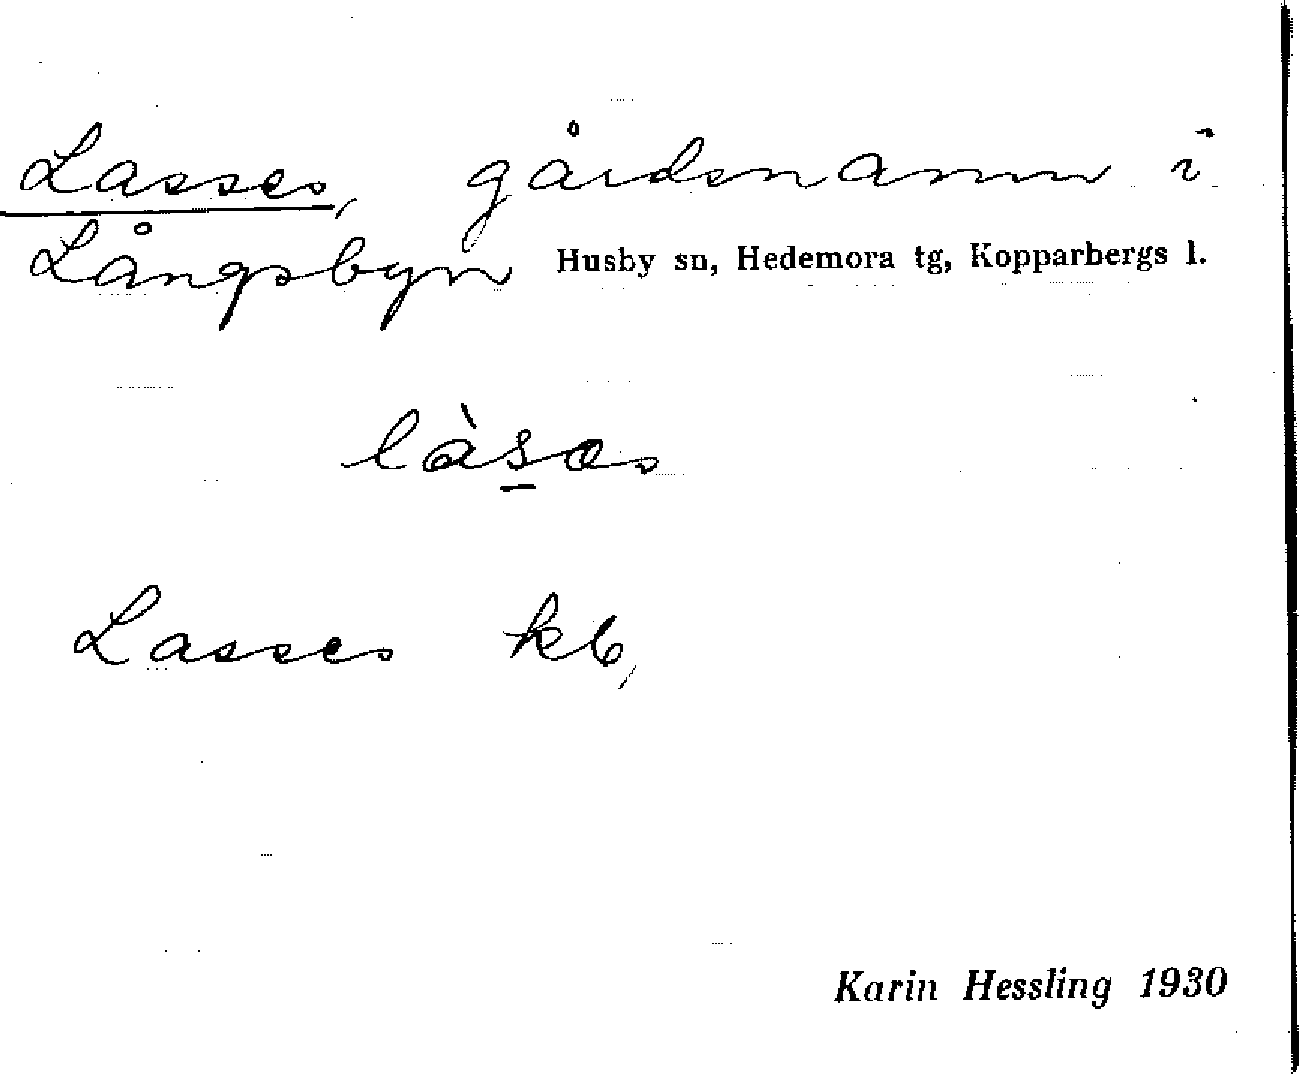 Lasses, gårdsnamn i
Långsbyn Husby sn, Hedemora tg, Kopparbergs l.
làs̲os
Lasses kb,
Karin Hessling 1930